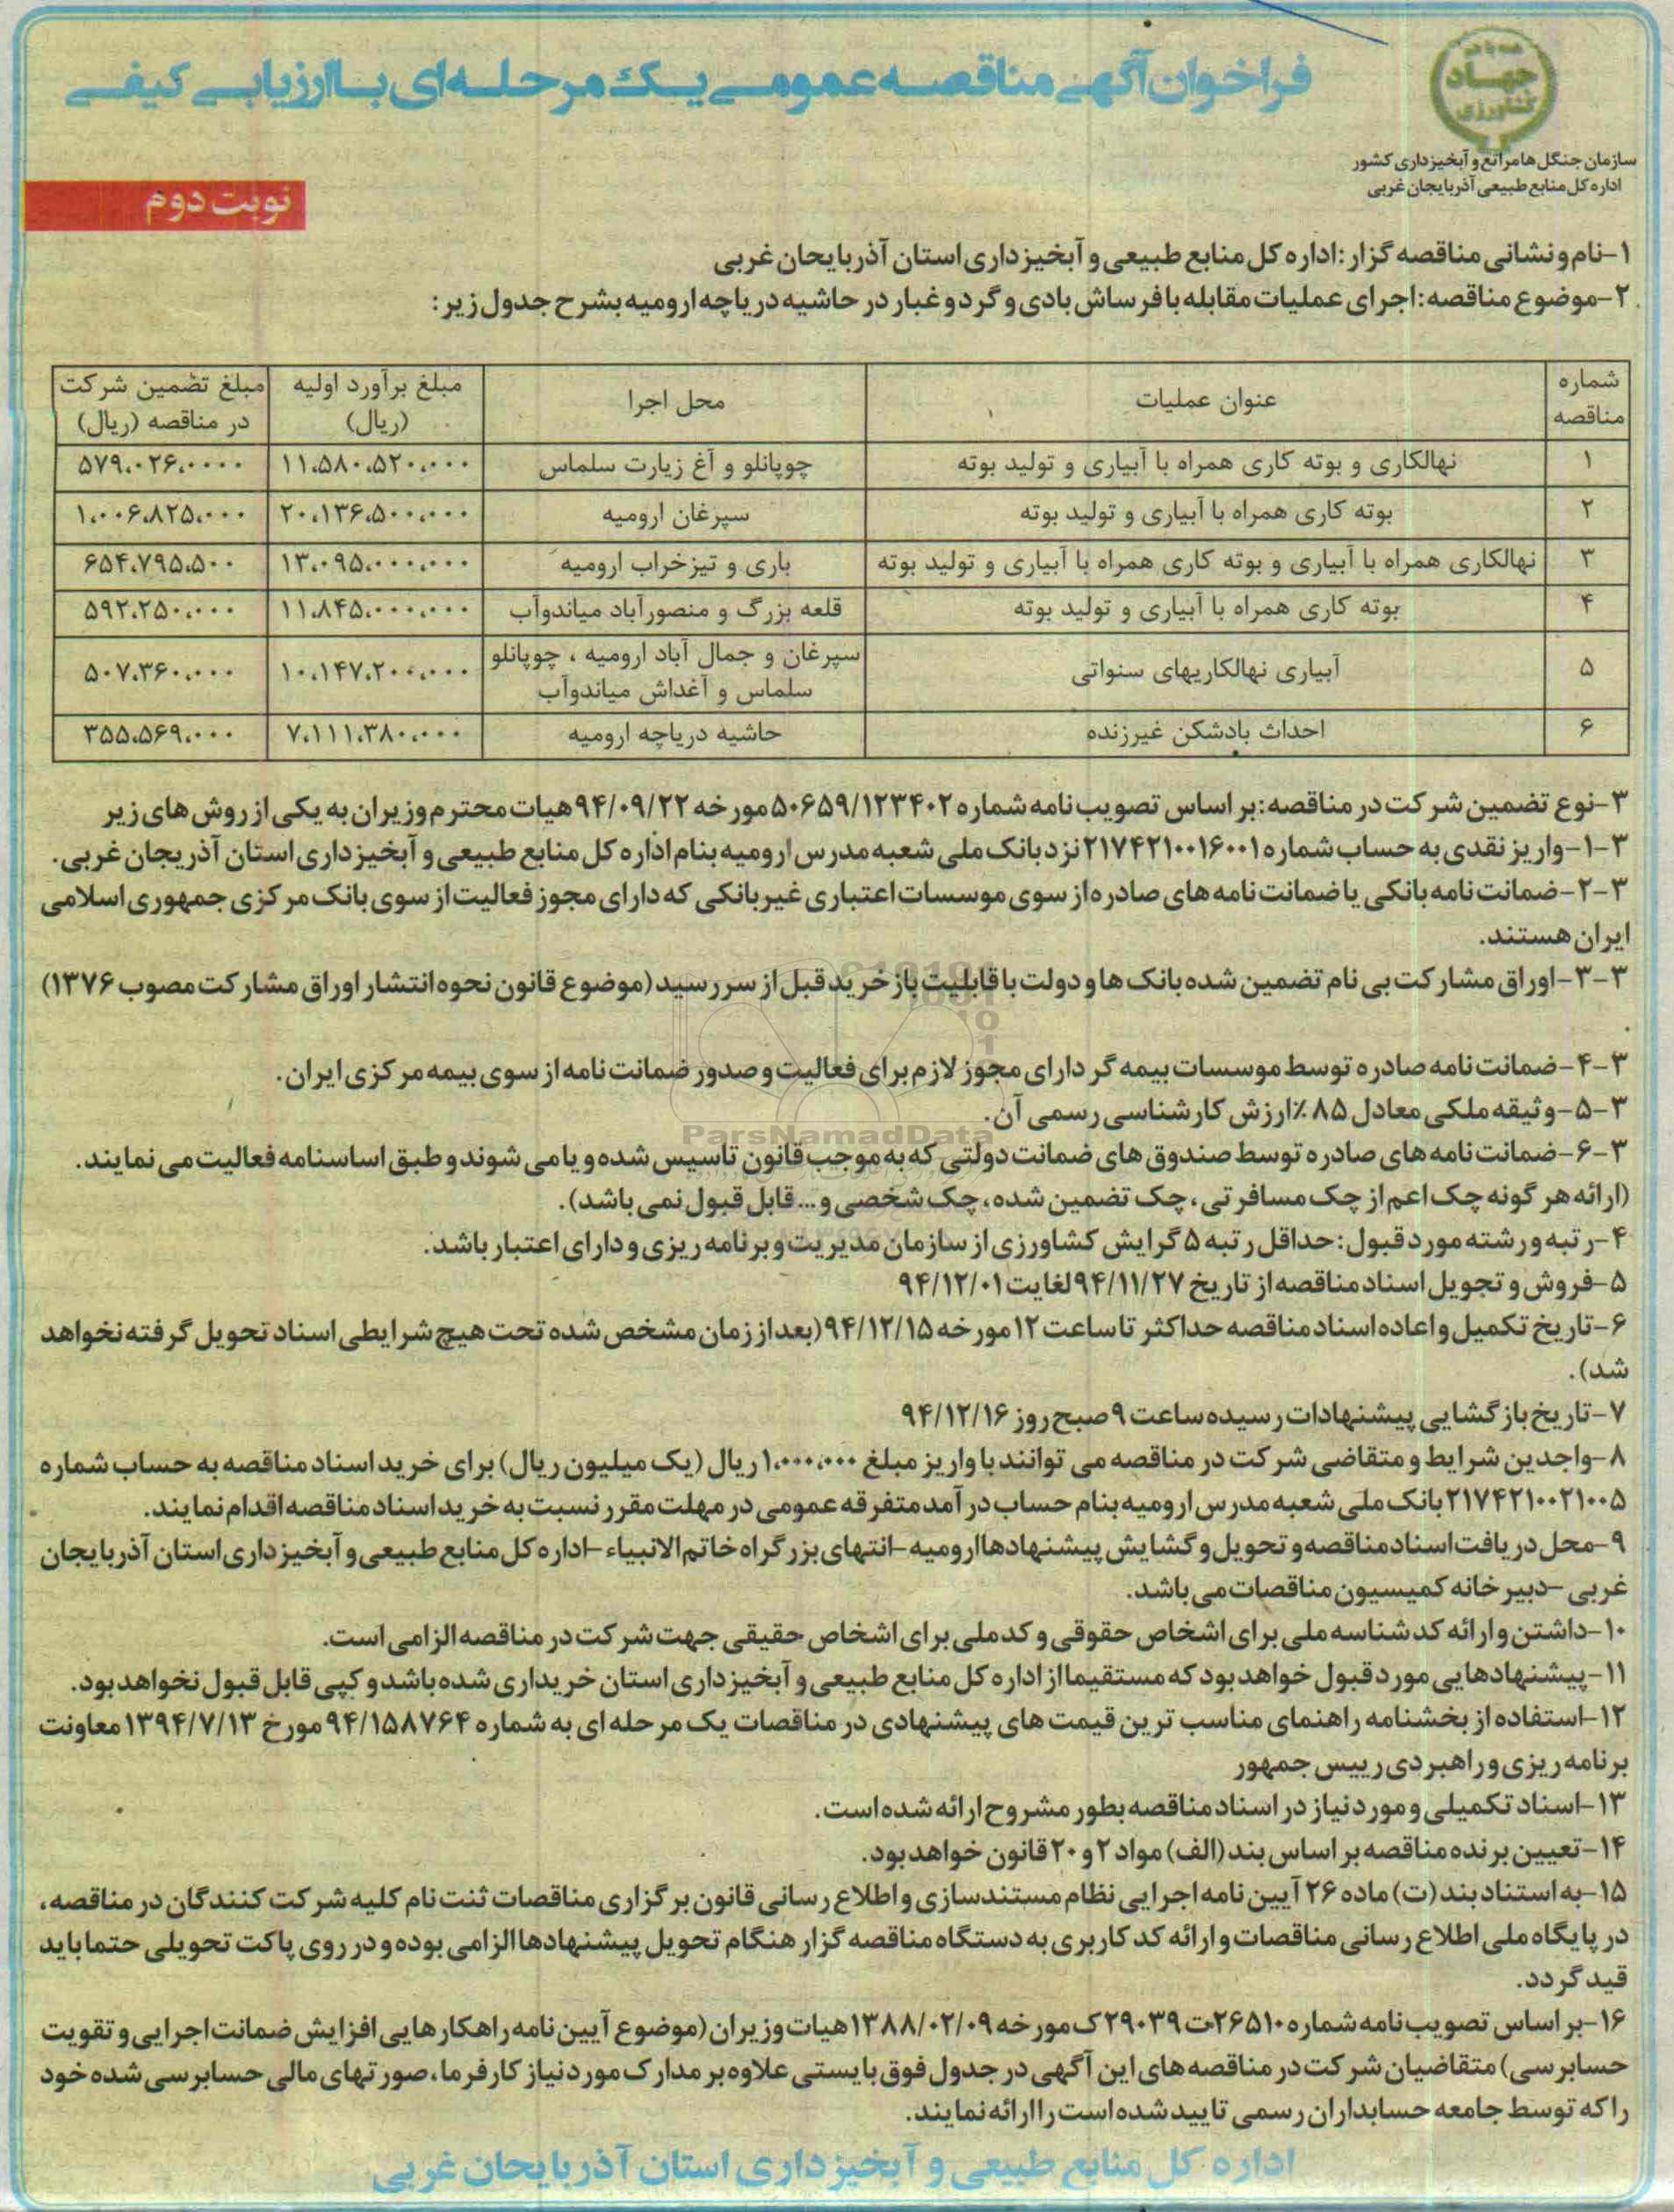 فراخوان آگهی مناقصه عمومی یک مرحله ای با ارزیابی کیفی
جهاد
کشاورزی
سازمان جنگل ها مراتع و آبخیزداری کشور
اداره کل منابع طبیعی آذربایجان غربی
نوبت دوم
۱-نام و نشانی مناقصه گزار: اداره کل منابع طبیعی و آبخیزداری استان آذربایجان غربی
۲-موضوع مناقصه: اجرای عملیات مقابله با فرساش بادی و گرد و غبار در حاشیه دریاچه ارومیه بشرح جدول زیر:
شماره مناقصه | عنوان عملیات | محل اجرا | مبلغ برآورد اولیه (ریال) | مبلغ تضمین شرکت در مناقصه (ریال)
۱ | نهالکاری و بوته کاری همراه با آبیاری و تولید بوته | چوپانلو و آغ زیارت سلماس | ۱۱،۵۸۰،۵۲۰،۰۰۰ | ۵۷۹،۰۲۶،۰۰۰۰
۲ | بوته کاری همراه با آبیاری و تولید بوته | سپرغان ارومیه | ۲۰،۱۳۶،۵۰۰،۰۰۰ | ۱،۰۰۶،۸۲۵،۰۰۰
۳ | نهالکاری همراه با آبیاری و بوته کاری همراه با آبیاری و تولید بوته | باری و تیزخراب ارومیه | ۱۳،۰۹۵،۰۰۰،۰۰۰ | ۶۵۴،۷۹۵،۵۰۰
۴ | بوته کاری همراه با آبیاری و تولید بوته | قلعه بزرگ و منصورآباد میاندوآب | ۱۱،۸۴۵،۰۰۰،۰۰۰ | ۵۹۲،۲۵۰،۰۰۰
۵ | آبیاری نهالکاریهای سنواتی | سپرغان و جمال آباد ارومیه ، چوپانلو سلماس و آغداش میاندوآب | ۱۰،۱۴۷،۲۰۰،۰۰۰ | ۵۰۷،۳۶۰،۰۰۰
۶ | احداث بادشکن غیرزنده | حاشیه دریاچه ارومیه | ۷،۱۱۱،۳۸۰،۰۰۰ | ۳۵۵،۵۶۹،۰۰۰
۳-نوع تضمین شرکت در مناقصه: بر اساس تصویب نامه شماره ۵۰۶۵۹/۱۲۳۴۰۲ مورخه ۹۴/۰۹/۲۲ هیات محترم وزیران به یکی از روش های زیر
۳-۱-واریز نقدی به حساب شماره ۲۱۷۴۲۱۰۰۱۶۰۰۱ نزد بانک ملی شعبه مدرس ارومیه بنام اداره کل منابع طبیعی و آبخیزداری استان آذریجان غربی.
۳-۲-ضمانت نامه بانکی یا ضمانت نامه های صادره از سوی موسسات اعتباری غیربانکی که دارای مجوز فعالیت از سوی بانک مرکزی جمهوری اسلامی
ایران هستند.
۳-۳-اوراق مشارکت بی نام تضمین شده بانک ها و دولت با قابلیت باز خرید قبل از سررسید (موضوع قانون نحوه انتشار اوراق مشارکت مصوب ۱۳۷۶)
.
۳-۴-ضمانت نامه صادره توسط موسسات بیمه گر دارای مجوز لازم برای فعالیت و صدور ضمانت نامه از سوی بیمه مرکزی ایران.
۳-۵-وثیقه ملکی معادل ۸۵٪ ارزش کارشناسی رسمی آن.
ParsNamadData
۳-۶-ضمانت نامه های صادره توسط صندوق های ضمانت دولتی که به موجب قانون تاسیس شده و یا می شوند و طبق اساسنامه فعالیت می نمایند.
(ارائه هر گونه چک اعم از چک مسافرتی، چک تضمین شده، چک شخصی و... قابل قبول نمی باشد).
۴-رتبه و رشته مورد قبول: حداقل رتبه ۵ گرایش کشاورزی از سازمان مدیریت و برنامه ریزی و دارای اعتبار باشد.
۵-فروش و تجویل اسناد مناقصه از تاریخ ۹۴/۱۱/۲۷ لغایت ۹۴/۱۲/۰۱
۶-تاریخ تکمیل و اعاده اسناد مناقصه حداکثر تا ساعت ۱۲ مورخه ۹۴/۱۲/۱۵ (بعد از زمان مشخص شده تحت هیچ شرایطی اسناد تحویل گرفته نخواهد
شد).
۷-تاریخ بازگشایی پیشنهادات رسیده ساعت ۹ صبح روز ۹۴/۱۲/۱۶
۸-واجدین شرایط و متقاضی شرکت در مناقصه می توانند با واریز مبلغ ۱،۰۰۰،۰۰۰ ریال (یک میلیون ریال) برای خرید اسناد مناقصه به حساب شماره
۲۱۷۴۲۱۰۰۲۱۰۰۵ بانک ملی شعبه مدرس ارومیه بنام حساب درآمد متفرقه عمومی در مهلت مقرر نسبت به خرید اسناد مناقصه اقدام نمایند.
۹-محل دریافت اسناد مناقصه و تحویل و گشایش پیشنهادها ارومیه -انتهای بزرگراه خاتم الانبیاء -اداره کل منابع طبیعی و آبخیزداری استان آذربایجان
غربی -دبیرخانه کمیسیون مناقصات می باشد.
۱۰-داشتن و ارائه کد شناسه ملی برای اشخاص حقوقی و کد ملی برای اشخاص حقیقی جهت شرکت در مناقصه الزامی است.
۱۱-پیشنهادهایی مورد قبول خواهد بود که مستقیما از اداره کل منابع طبیعی و آبخیزداری استان خریداری شده باشد و کپی قابل قبول نخواهد بود.
۱۲-استفاده از بخشنامه راهنمای مناسب ترین قیمت های پیشنهادی در مناقصات یک مرحله ای به شماره ۹۴/۱۵۸۷۶۴ مورخ ۱۳۹۴/۷/۱۳ معاونت
برنامه ریزی و راهبردی رییس جمهور
۱۳-اسناد تکمیلی و مورد نیاز در اسناد مناقصه بطور مشروح ارائه شده است.
۱۴-تعیین برنده مناقصه بر اساس بند (الف) مواد ۲ و ۲۰ قانون خواهد بود.
۱۵-به استناد بند (ت) ماده ۲۶ آیین نامه اجرایی نظام مستندسازی و اطلاع رسانی قانون برگزاری مناقصات ثنت نام کلیه شرکت کنندگان در مناقصه،
در پایگاه ملی اطلاع رسانی مناقصات و ارائه کد کاربری به دستگاه مناقصه گزار هنگام تحویل پیشنهادها الزامی بوده و در روی پاکت تحویلی حتما باید
قید گردد.
۱۶-بر اساس تصویب نامه شماره ۲۶۵۱۰ت۲۹۰۳۹ک مورخه ۱۳۸۸/۰۲/۰۹ هیات وزیران (موضوع آیین نامه راهکارهایی افزایش ضمانت اجرایی و تقویت
حسابرسی) متقاضیان شرکت در مناقصه های این آگهی در جدول فوق بایستی علاوه بر مدارک مورد نیاز کارفرما، صورتهای مالی حسابرسی شده خود
را که توسط جامعه حسابداران رسمی تایید شده است را ارائه نمایند.
اداره کل منابع طبیعی و آبخیزداری استان آذربایجان غربی